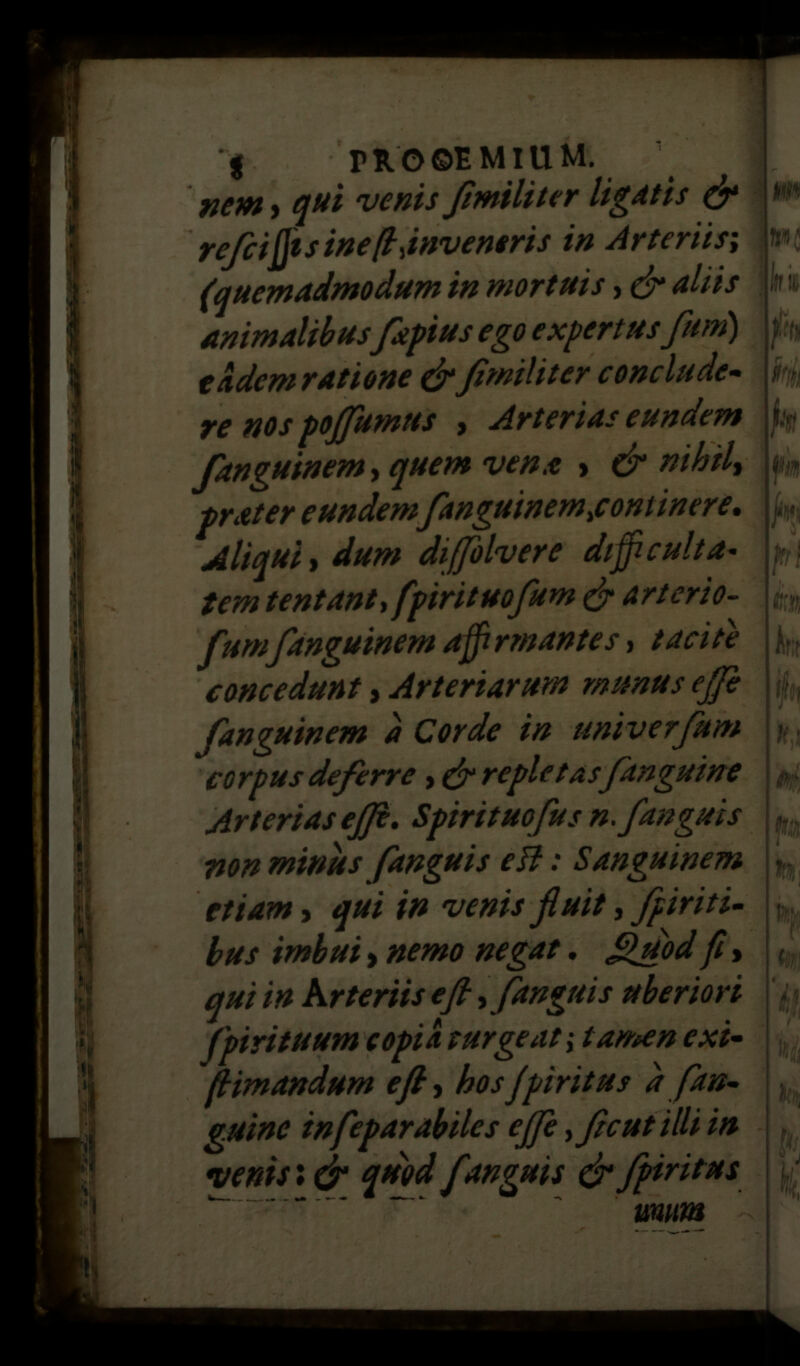 8 PROOEMIUM.
nem, qui venis ſimiliter ligatis &
reſciſſis ineſt, inveneris in Arteriis;
(quemadmodum in mortuis, & aliis
animalibus ſæpius ego expertus ſum)
eâdem ratione & ſimiliter conclude-
re nos poſſumus, Arterias eundem
ſanguinem, quem venæ, & nihil,
præter eundem ſanguinem, continere.
Aliqui, dum diſſolvere difficulta-
tem tentant, ſpirituoſum & arterio-
ſum ſanguinem affirmantes, tacitè
concedunt, Arteriarum munus eſſe
ſanguinem à Corde in univerſum
corpus deferre, & repletas ſanguine
Arterias eſſe. Spirituoſus n. ſanguis
non minùs ſanguis eſt: Sanguinem
etiam, qui in venis fluit, ſpiriti-
bus imbui, nemo negat. Quòd ſi,
qui in Arteriis eſt, ſanguis uberiori
ſpirituum copiâ turgeat; tamen exi-
ſtimandum eſt, hos ſpiritus à ſan-
guine inſeparabiles eſſe, ſicut illi in
venis: & quòd ſanguis & ſpiritus
unum